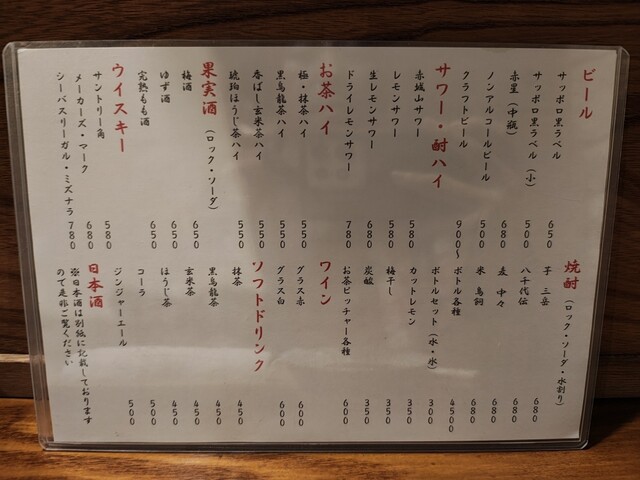 ビール
サッポロ黒ラベル 650
サッポロ黒ラベル(小) 500
赤星(中瓶) 680
ノンアルコールビール 500
クラフトビール 900〜
サワー・酎ハイ
赤城山サワー 580
レモンサワー 580
生レモンサワー 680
ドライレモンサワー 780
お茶ハイ
極・抹茶ハイ 550
黒烏龍茶ハイ 550
香ばし玄米茶ハイ 550
琥珀ほうじ茶ハイ 550
果実酒(ロック・ソーダ)
梅酒 650
ゆず酒 650
完熟もも酒 650
ウイスキー
サントリー角 580
メーカーズ・マーク 680
シーバスリーガル・ミズナラ 780
焼酎(ロック・ソーダ・水割り)
芋 三岳 680
八千代伝 680
麦 中々 680
米 鳥飼 680
ボトル各種 4500
ボトルセット(水・氷) 300
カットレモン 350
梅干し 350
炭酸 350
お茶ピッチャー各種 600
ワイン
グラス赤 600
グラス白 600
ソフトドリンク
抹茶 450
黒烏龍茶 450
玄米茶 450
ほうじ茶 450
コーラ 500
ジンジャーエール 500
日本酒
※日本酒は別紙に記載しております
ので是非ご覧ください